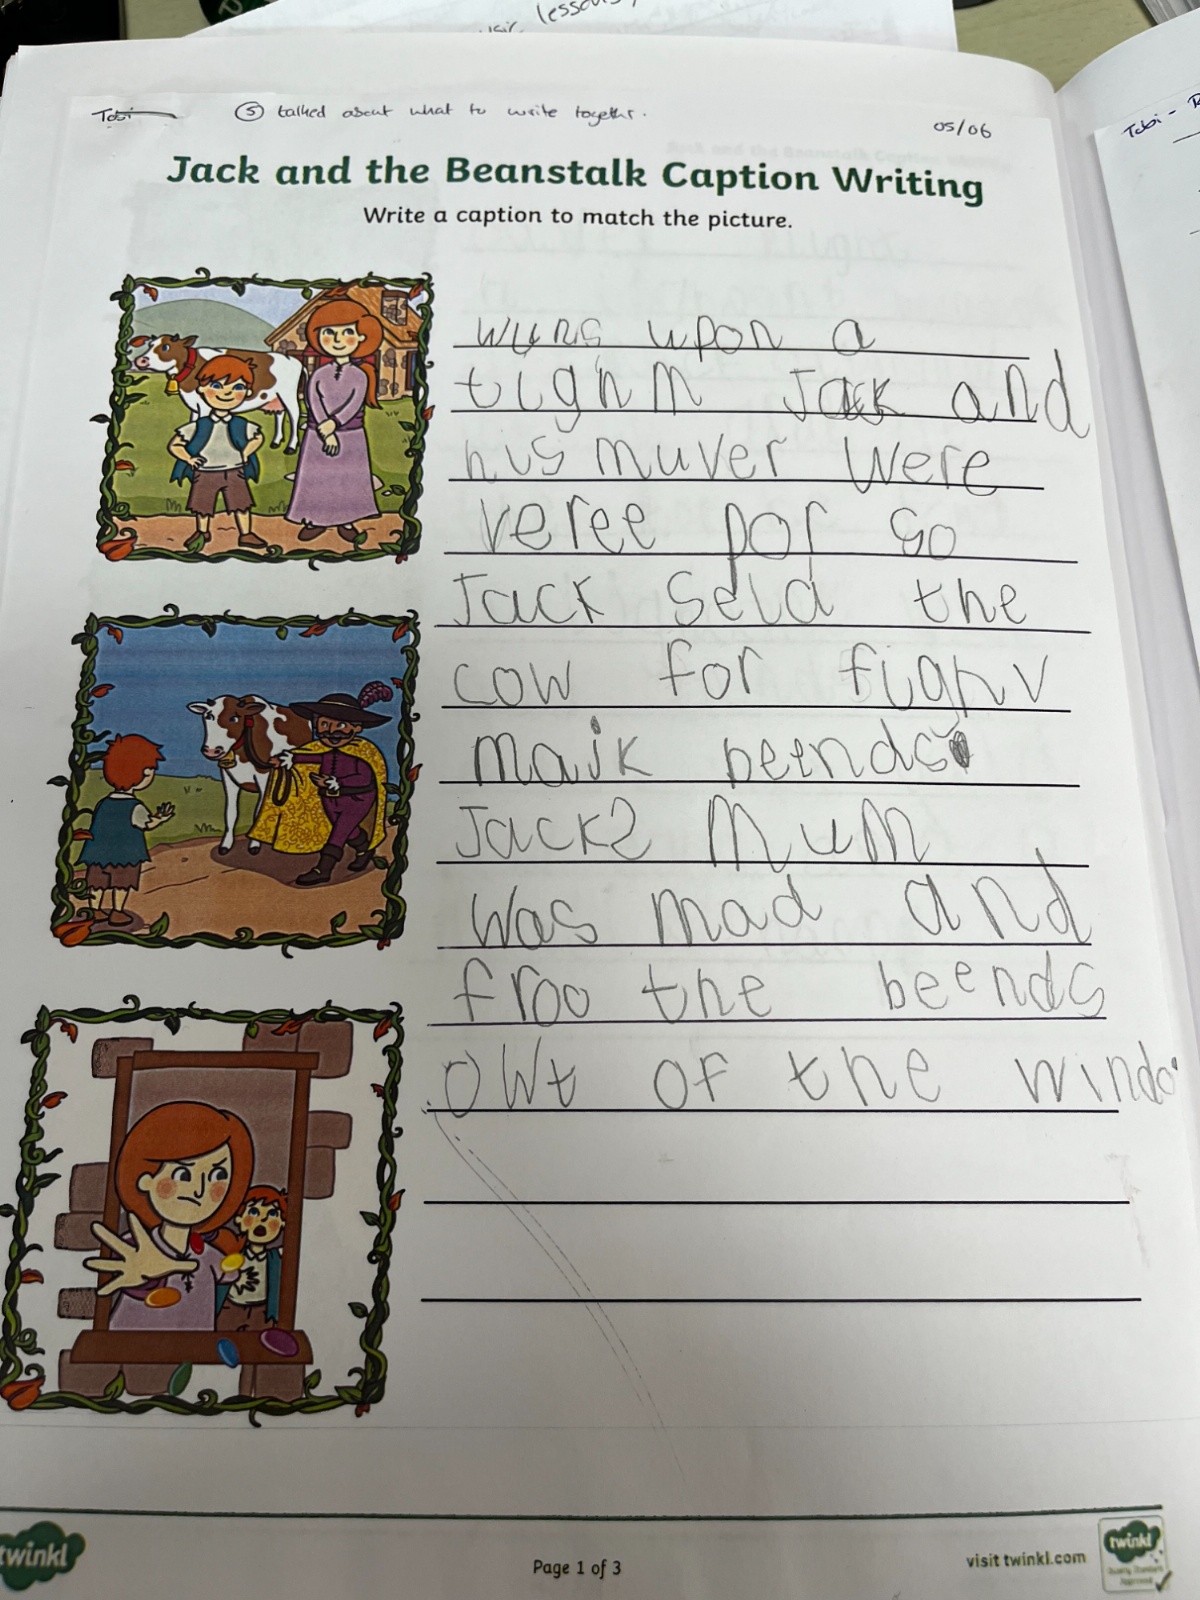 lessons,
Tobi
⑤ talked about what to write together.
05/06
Tobi -
Jack and the Beanstalk Caption Writing
Write a caption to match the picture.
wuns upon a
tighm Jack and
his muver were
veree por so
Jack seld the
cow for fighv
majk beends
Jacks mum
was mad and
froo the beends
owt of the windo
twinkl
Page 1 of 3
visit twinkl.com
twinkl
Quality Standard
Approved